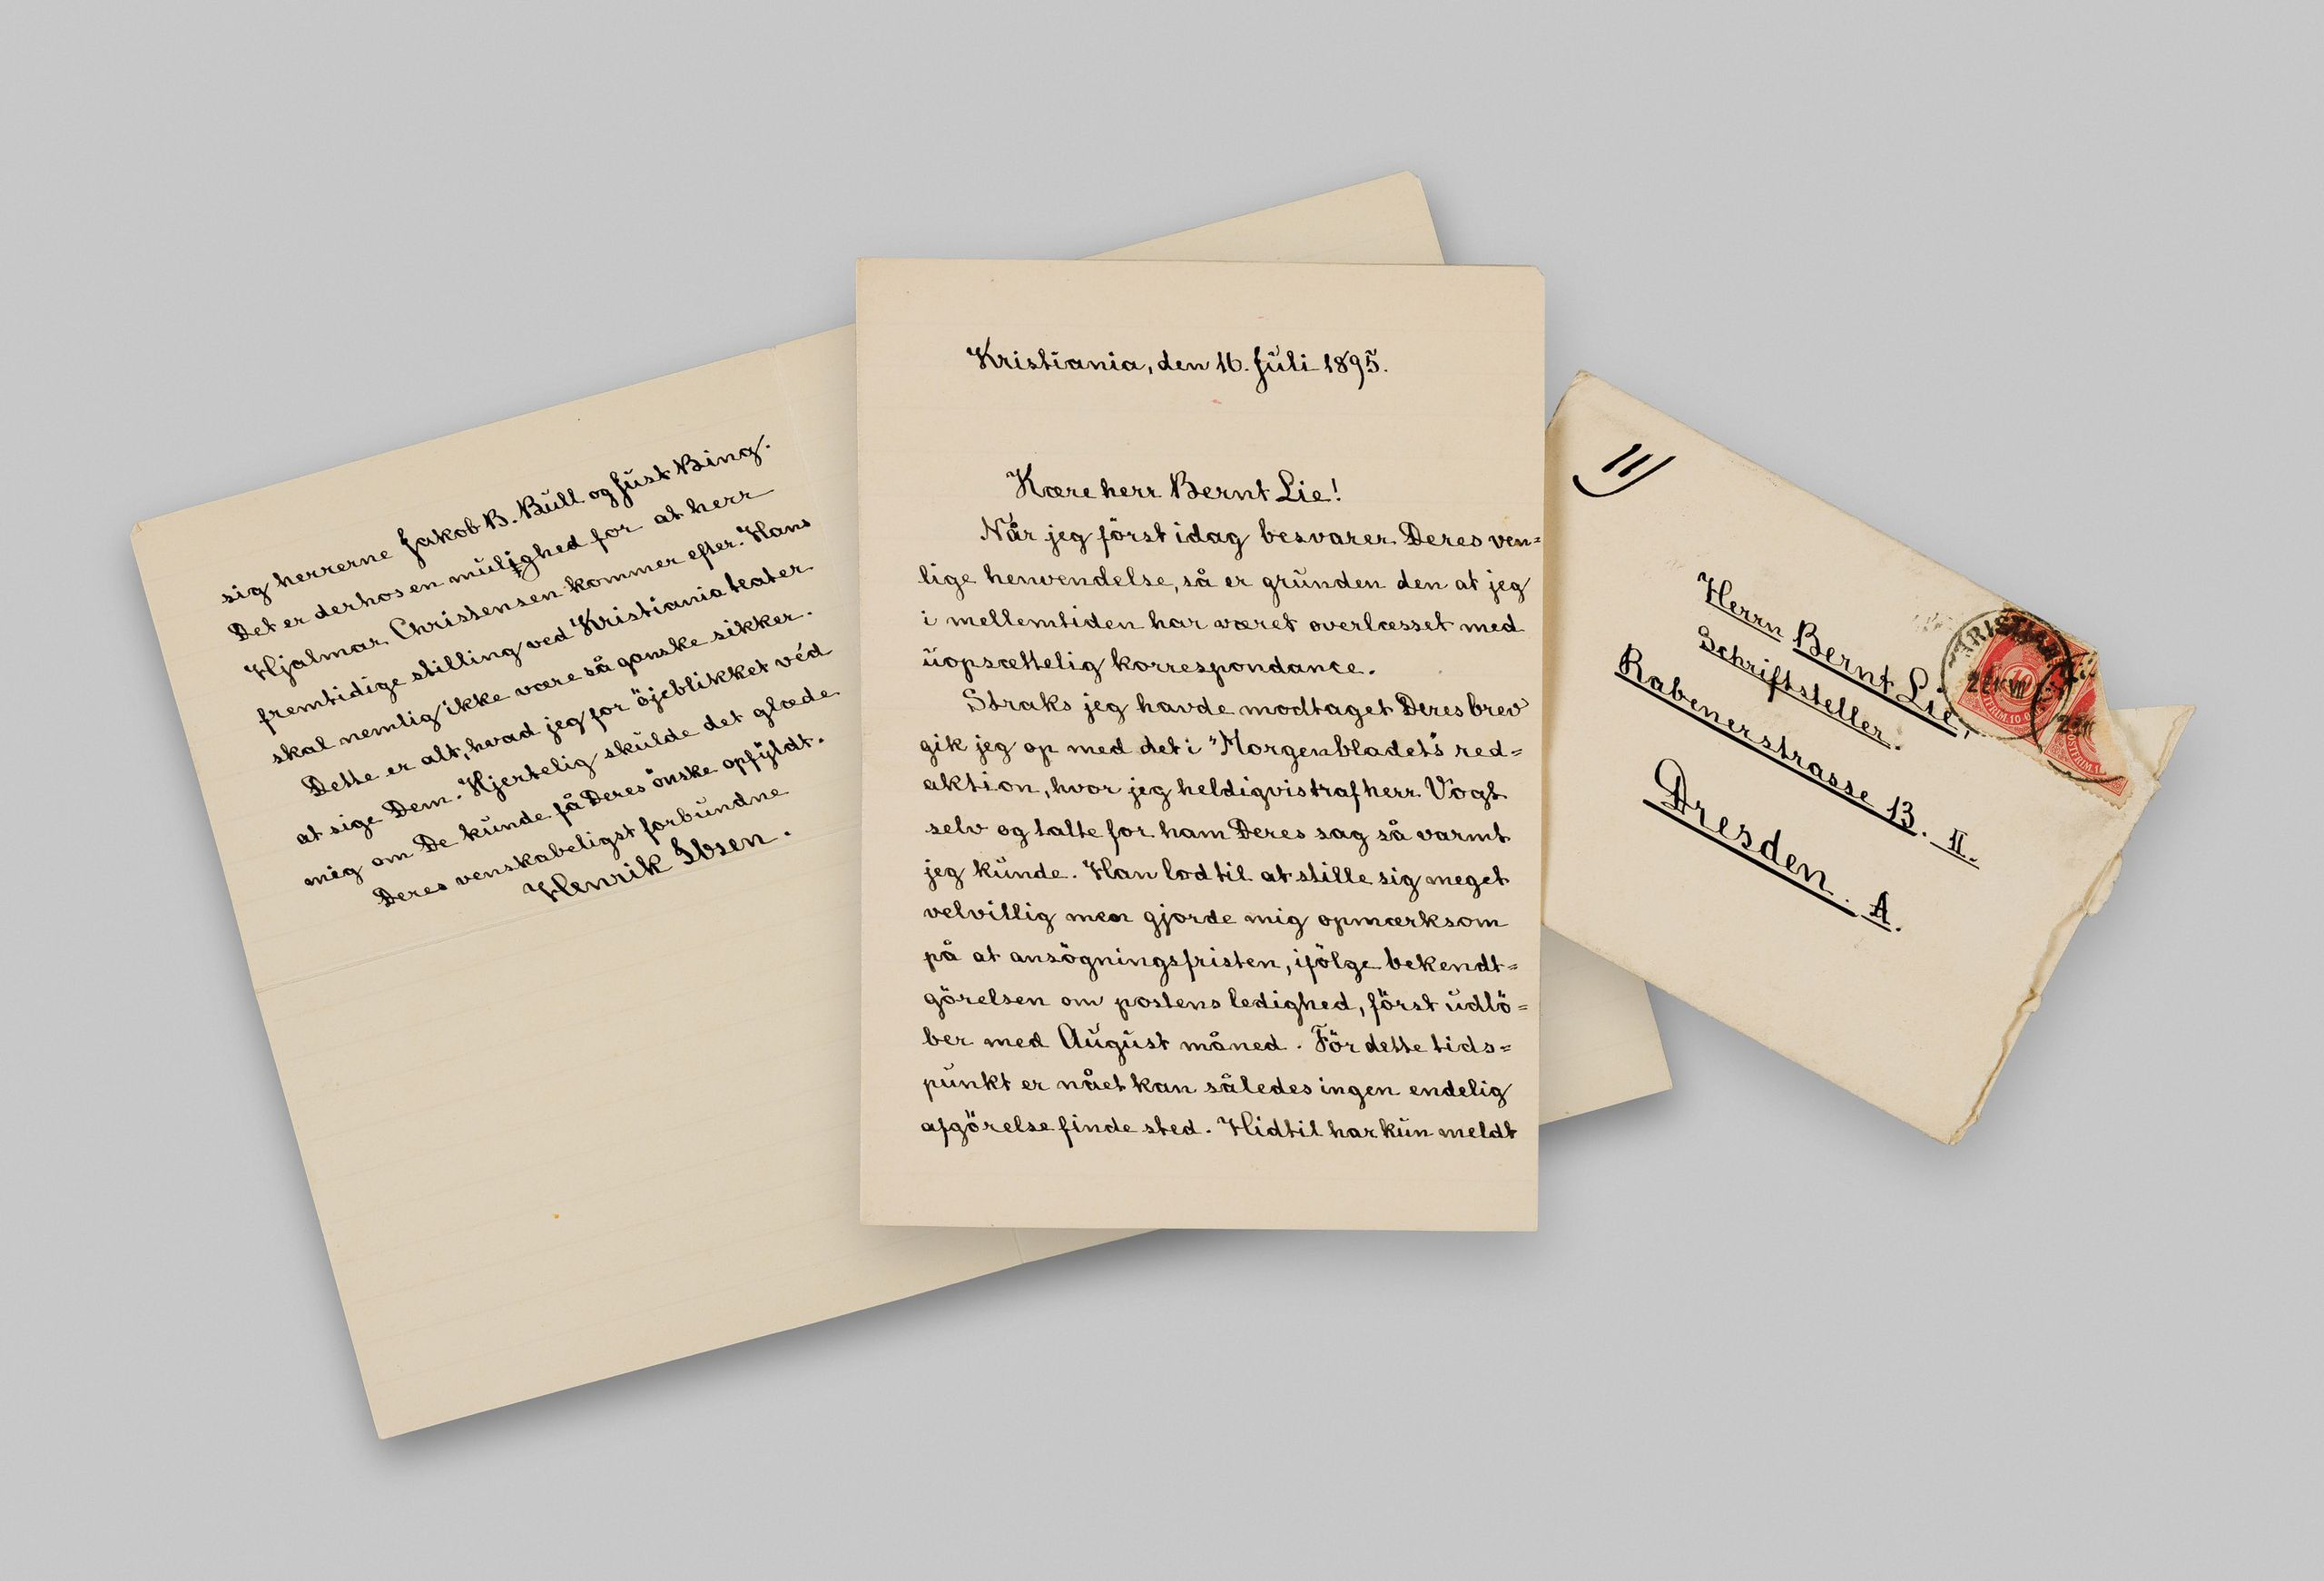 Kristiania, den 16. Juli 1895.
Kære herr Bernt Lie!
Når jeg först idag besvarer Deres ven=
lige henvendelse, så er grunden den at jeg
i mellemtiden har været overlæsset med
uopsættelig korrespondance.
Straks jeg havde modtaget Deres brev
gik jeg op med det i "Morgenbladet"s red=
aktion, hvor jeg heldigvis traf herr Vogt
selv og talte for ham Deres sag så varmt
jeg kunde. Han lod til at stille sig meget
velvillig men gjorde mig opmærksom
på at ansögningsfristen, ifölge bekendt=
görelsen om postens ledighed, först udlö=
ber med August måned. För dette tids=
punkt er nået kan således ingen endelig
afgörelse finde sted. Hidtil har kun meldt
sig herrerne Jakob B. Bull og Just Bing.
Det er derhos en mulighed for at herr
Hjalmar Christensen kommer efter. Hans
fremtidige stilling ved Kristiania teater
skal nemlig ikke være så ganske sikker.
Dette er alt, hvad jeg for öjeblikket véd
at sige Dem. Hjertelig skulde det glæde
mig om De kunde få Deres önske opfyldt.
Deres venskabeligst forbundne
Henrik Ibsen.
11)
Herrn Bernt Lie,
Schriftsteller.
Rabenerstrasse 13. II.
Dresden. A.